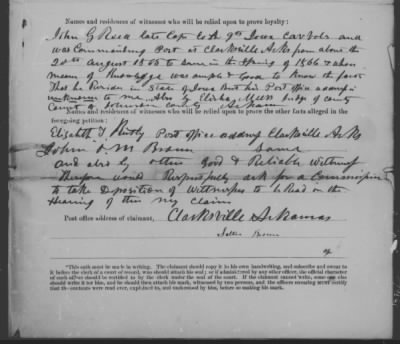 Names and residences of witnesses who will be relied upon to prove loyalty:
John G Rhea late Capt Co A 9th Iowa Cavalry and
was Commanding Post at Clarksville Arks from about the
20th August 1865 to some in the Spring of 1866 & whose
means of Knowledge was ample & good to know the facts
That he resides in State of Iowa But his Post office address is
unknown to me. Also by Elisha Mears Judge of County
Court of Johnson County
Names and residences of witnesses who will be relied upon to prove the other facts alleged in the
foregoing petition:
Elizabeth T Post office address Clarksville Arks
John M Brown Same
and also by other good & Reliable Witnesses
would Respectfully ask for a Commission
to take Deposition of Witnesses to be Read on the
Hearing of this my claim
Post office address of claimant, Clarksville Arkansas
Brown
"This oath must be made in writing. The claimant should copy it in his own handwriting, and subscribe and swear to
it before the clerk of a court of record, who should attach his seal; or if administered by any other officer, the official character
of such officer should be certified to by the clerk under the seal of the court. If the claimant cannot write, some one else
should write it for him, and he should then attach his mark, witnessed by two persons, and the officers swearing must certify
that the contents were read over, explained to, and understood by him, before so making his mark.